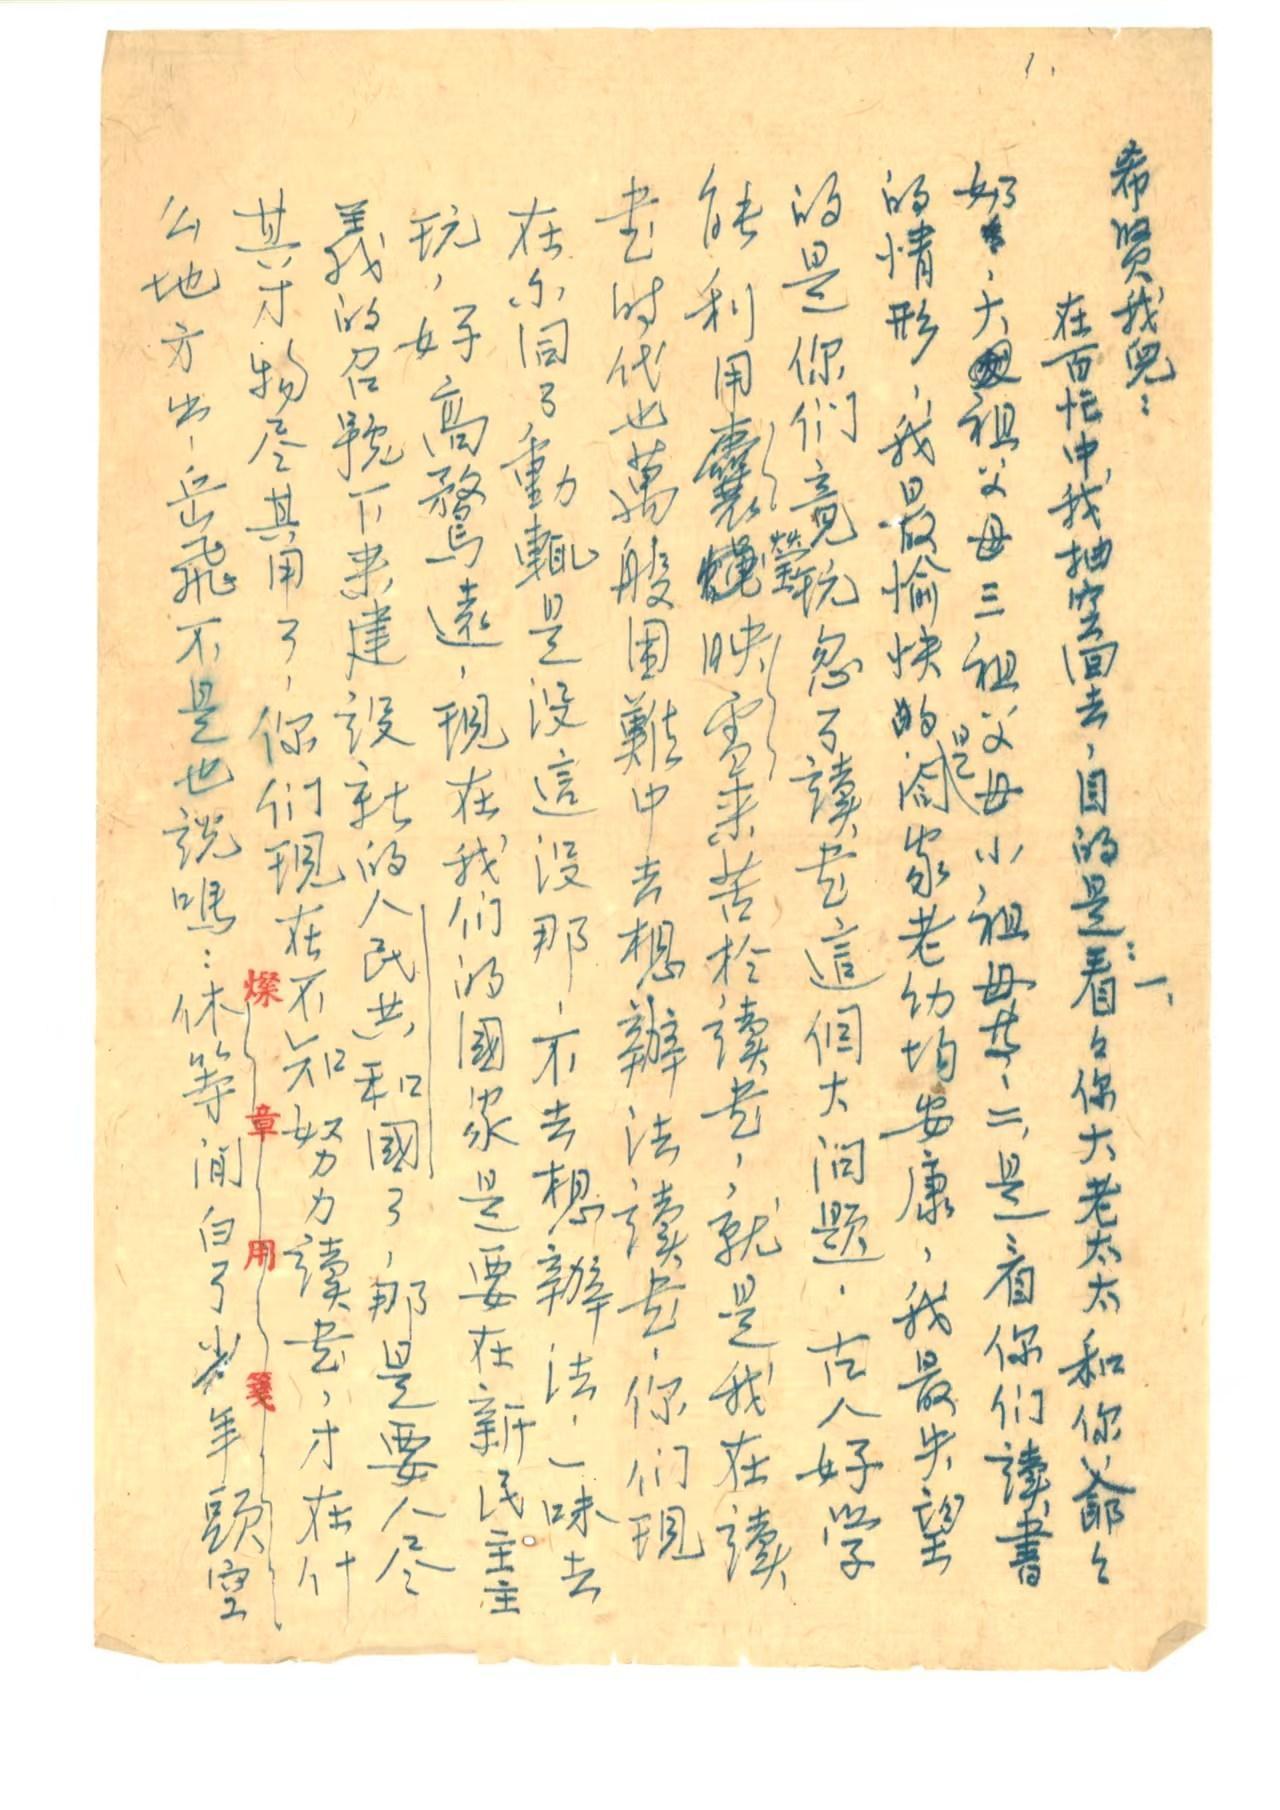 1.
希贤我兒：
在百忙中，我抽空回去，目的是：一、看々你大老太太和你爷々
奶々，大祖父母三祖父母小祖母等，二，是看你们讀書
的情形，我最愉快的是阖家老幼均安康，我最失望
的是你们竟玩忽了讀书這個大问题．古人好学
能利用囊萤映雪来苦於讀书，就是我在讀
书时代也萬般困難中去想辦法讀书，你们现
在尔同了動輒是没這没那，不去想辦法，一味去
玩，好高騖遠，现在我们的國家是要在新民主主
義的召號下来建設新的人民共和國了，那是要人尽
其才物尽其用了，你们现在不知努力讀书，才在什
么地方出，岳飛不是也説嗎：休等闲白了少年頭空
燦章用箋